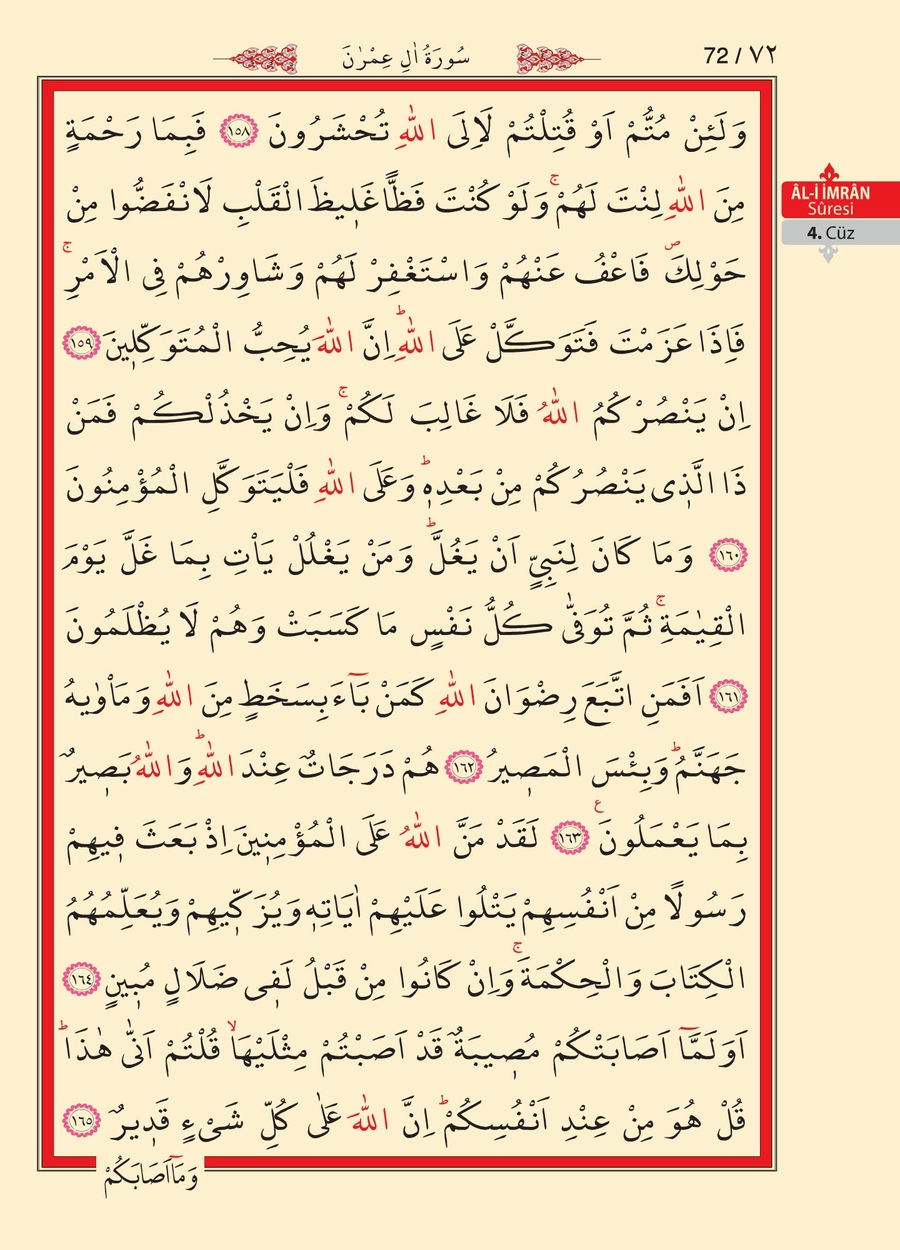 سُورَةُ اٰلِ عِمْرٰنَ
72 / ٧٢
وَلَئِنْ مُتُّمْ اَوْ قُتِلْتُمْ لَاِلَى اللّٰهِ تُحْشَرُونَ ﴿١٥٨﴾ فَبِمَا رَحْمَةٍ
مِنَ اللّٰهِ لِنْتَ لَهُمْۚ وَلَوْ كُنْتَ فَظًّا غَلٖيظَ الْقَلْبِ لَانْفَضُّوا مِنْ
حَوْلِكَۖ فَاعْفُ عَنْهُمْ وَاسْتَغْفِرْ لَهُمْ وَشَاوِرْهُمْ فِى الْاَمْرِۚ
فَاِذَا عَزَمْتَ فَتَوَكَّلْ عَلَى اللّٰهِؕ اِنَّ اللّٰهَ يُحِبُّ الْمُتَوَكِّلٖينَ ﴿١٥٩﴾
اِنْ يَنْصُرْكُمُ اللّٰهُ فَلَا غَالِبَ لَكُمْۚ وَاِنْ يَخْذُلْكُمْ فَمَنْ
ذَا الَّذٖى يَنْصُرُكُمْ مِنْ بَعْدِهٖؕ وَعَلَى اللّٰهِ فَلْيَتَوَكَّلِ الْمُؤْمِنُونَ
﴿١٦٠﴾ وَمَا كَانَ لِنَبِىٍّ اَنْ يَغُلَّؕ وَمَنْ يَغْلُلْ يَاْتِ بِمَا غَلَّ يَوْمَ
الْقِيٰمَةِۚ ثُمَّ تُوَفّٰى كُلُّ نَفْسٍ مَا كَسَبَتْ وَهُمْ لَا يُظْلَمُونَ
﴿١٦١﴾ اَفَمَنِ اتَّبَعَ رِضْوَانَ اللّٰهِ كَمَنْ بَٓاءَ بِسَخَطٍ مِنَ اللّٰهِ وَمَاْوٰيهُ
جَهَنَّمُؕ وَبِئْسَ الْمَصٖيرُ ﴿١٦٢﴾ هُمْ دَرَجَاتٌ عِنْدَ اللّٰهِؕ وَاللّٰهُ بَصٖيرٌ
بِمَا يَعْمَلُونَۧ ﴿١٦٣﴾ لَقَدْ مَنَّ اللّٰهُ عَلَى الْمُؤْمِنٖينَ اِذْ بَعَثَ فٖيهِمْ
رَسُولًا مِنْ اَنْفُسِهِمْ يَتْلُوا عَلَيْهِمْ اٰيَاتِهٖ وَيُزَكّٖيهِمْ وَيُعَلِّمُهُمُ
الْكِتَابَ وَالْحِكْمَةَۚ وَاِنْ كَانُوا مِنْ قَبْلُ لَفٖى ضَلَالٍ مُبٖينٍ ﴿١٦٤﴾
اَوَلَمَّٓا اَصَابَتْكُمْ مُصٖيبَةٌ قَدْ اَصَبْتُمْ مِثْلَيْهَاۙ قُلْتُمْ اَنّٰى هٰذَاؕ
قُلْ هُوَ مِنْ عِنْدِ اَنْفُسِكُمْؕ اِنَّ اللّٰهَ عَلٰى كُلِّ شَىْءٍ قَدٖيرٌ ﴿١٦٥﴾
وَمَٓا اَصَابَكُمْ
ÂL-İ İMRÂN
Sûresi
4. Cüz